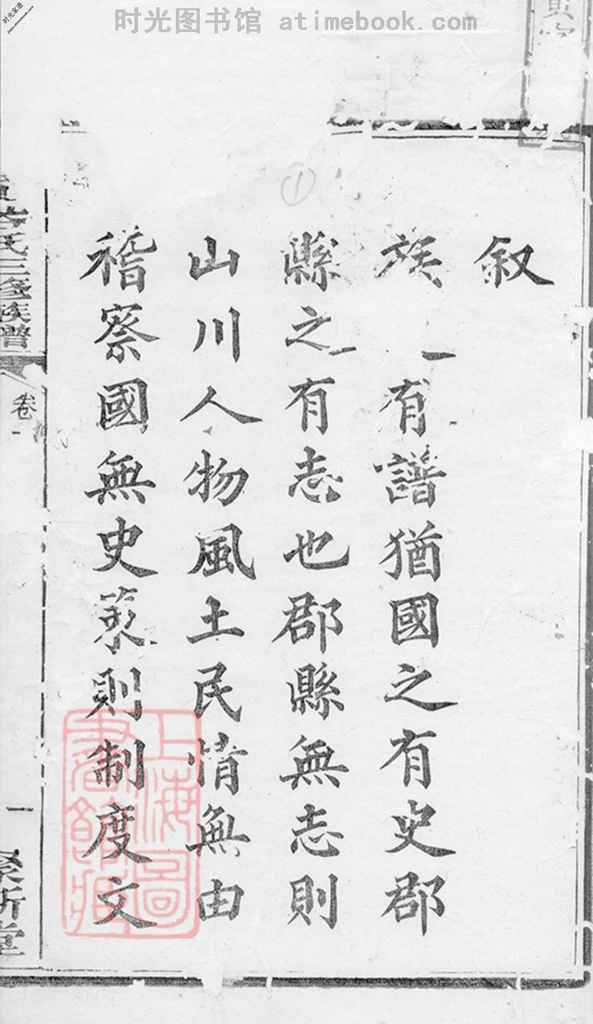 时光图书馆 atimebook.com
叙
族有譜猶國之有史郡
縣之有志也郡縣無志則
山川人物風土民情無由
稽察國無史策則制度文
氏三修族譜
卷一
一
堂
上海圖
書館藏
①